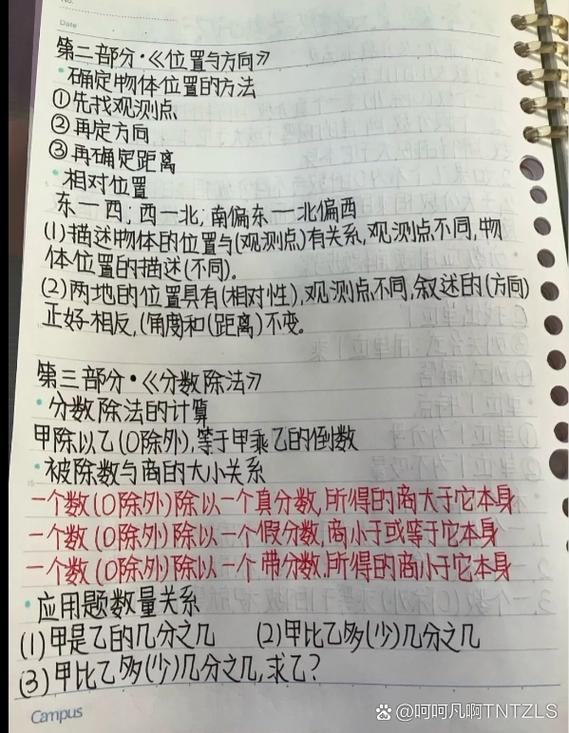 No.
Date
第二部分·《位置与方向》
·确定物体位置的方法
①先找观测点
②再定方向
③再确定距离
·相对位置
东一西;西一北;南偏东一北偏西
(1)描述物体的位置与(观测点)有关系,观测点不同,物
体位置的描述(不同)。
(2)两地的位置具有(相对性),观测点不同,叙述的(方向)
正好相反,(角度和(距离)不变。
第三部分·《分数除法》
·分数除法的计算
甲除以乙(0除外),等于甲乘乙的倒数
·被除数与商的大小关系
一个数(0除外)除以一个真分数,所得的商大于它本身
一个数(0除外)除以一个假分数,商小于或等于它本身
一个数(0除外)除以一个带分数.所得的商小于它本身
·应用题数量关系
(1)甲是乙的几分之几 (2)甲比乙多(少)几分之几
(3)甲比乙多(少)几分之几,求乙?
Campus
@呵呵凡啊TNTZLS